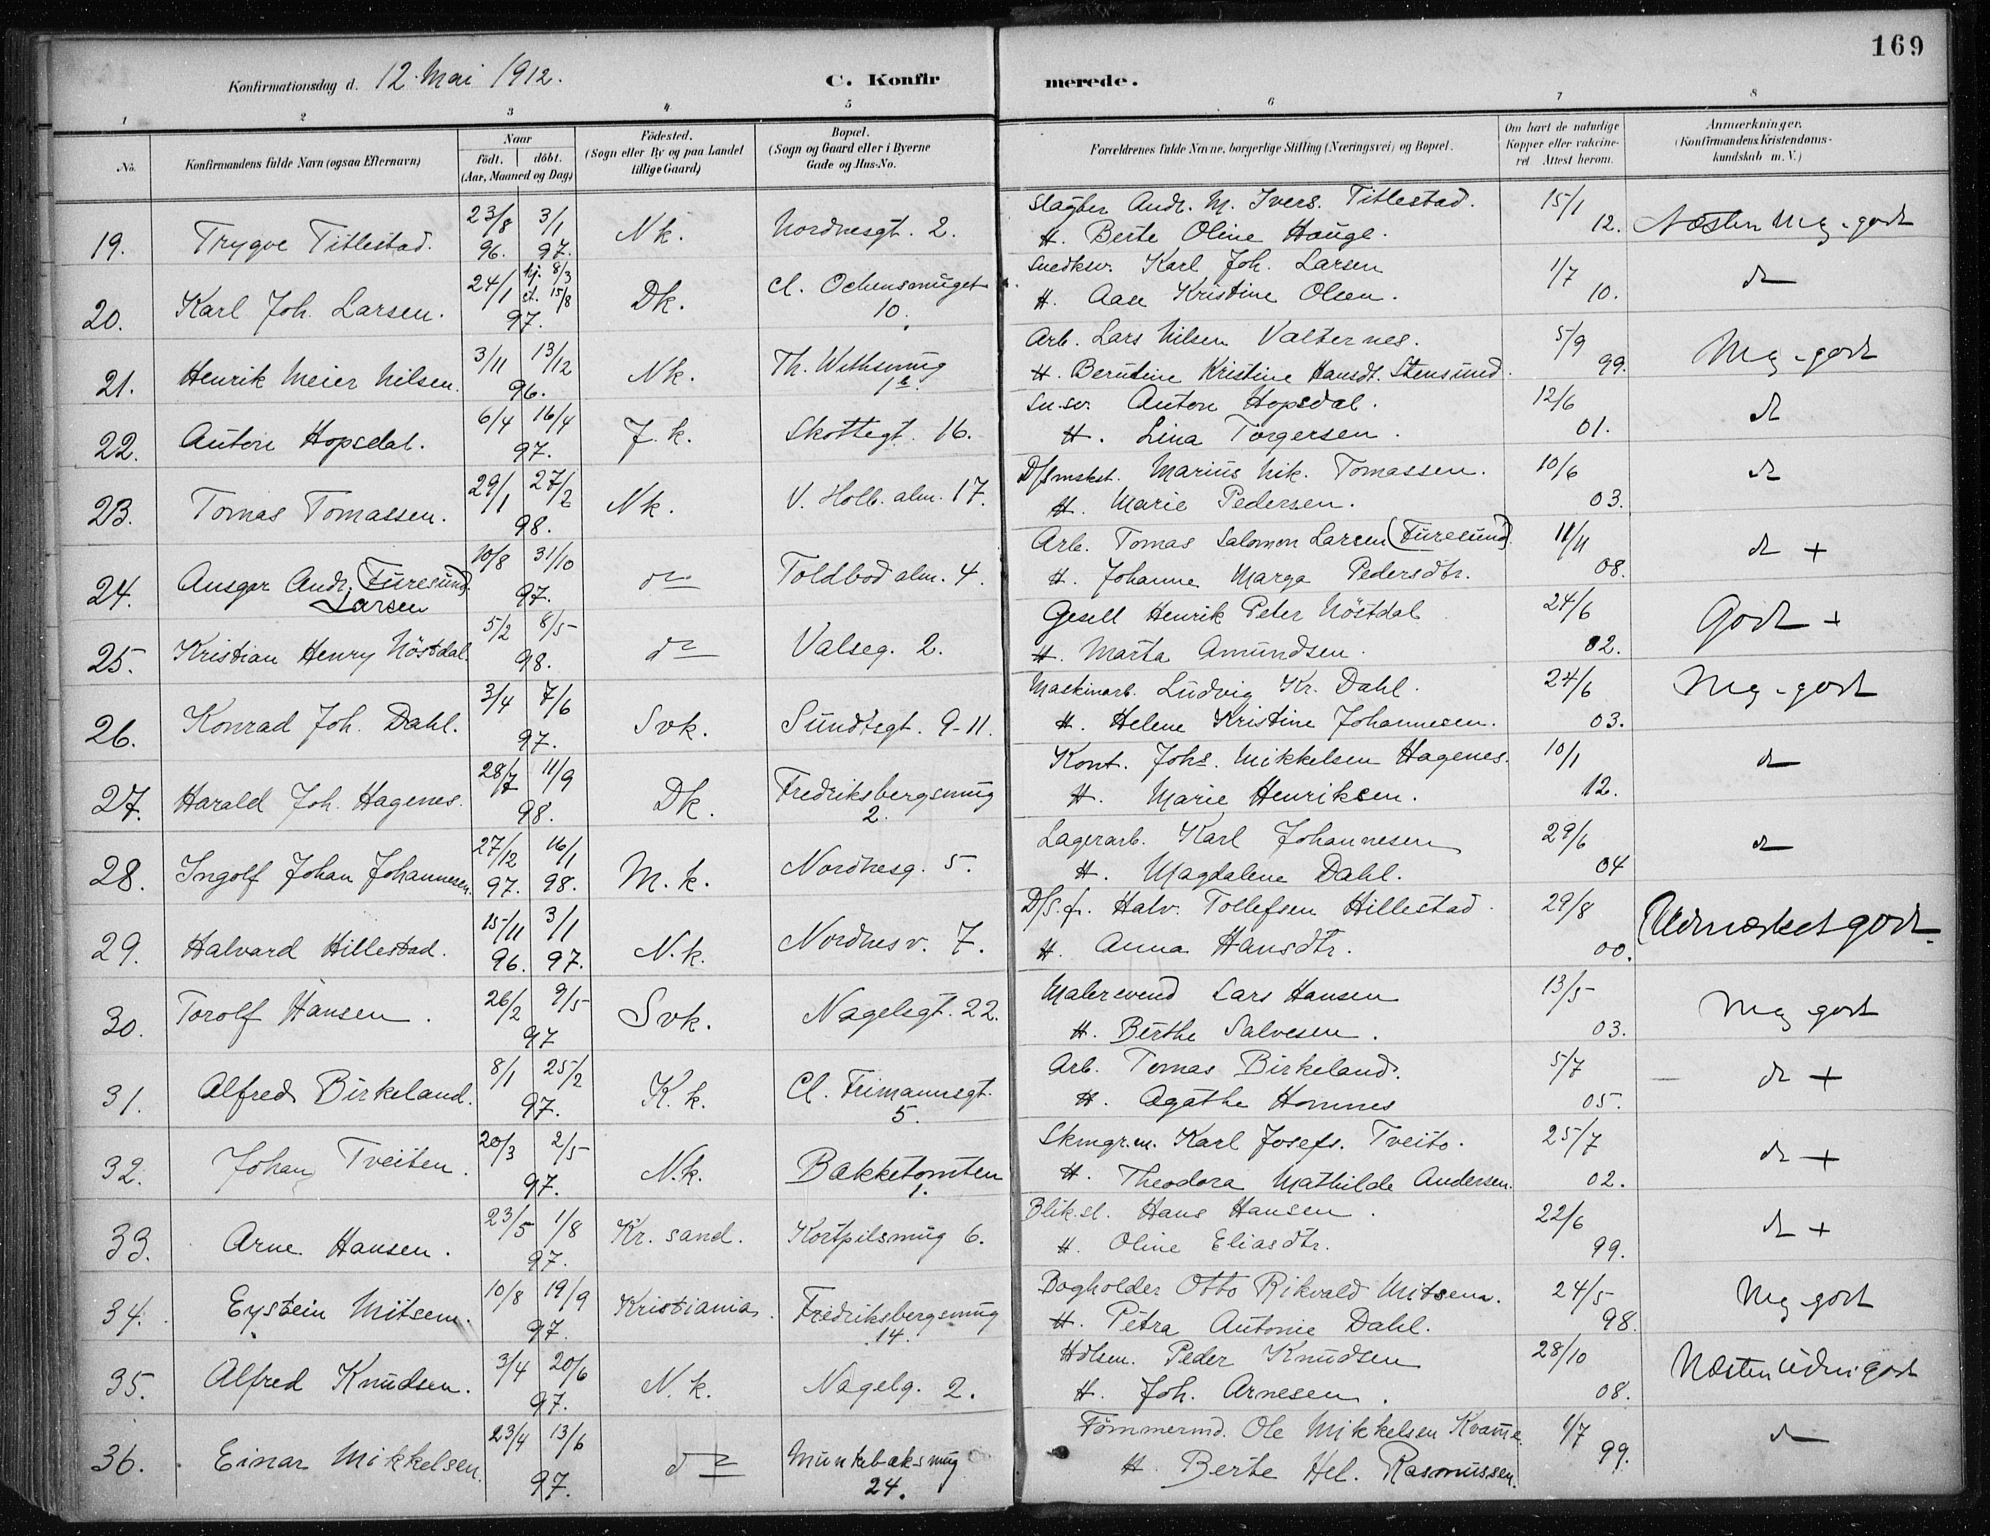 169
Konfirmationsdag d. 12. Mai 1912. C. Konfirmerede.
1 2 3 4 5 6 7 8
No. Konfirmandens fulde Navn (ogsaa Efternavn) Naar födt. döbt. (Aar, Maaned og Dag) Födested. (Sogn eller By og paa Landet tillige Gaard) Bopæl. (Sogn og Gaard eller i Byerne Gade og Hus-No. Forældrenes fulde Navne, borgerlige Stilling (Næringsvei) og Bopæl. Om havt de naturlige Kopper eller vakcineret Attest herom. Anmærkninger. (Konfirmandens Kristendomskundskab m. V.)
19. Trygve Titlestad. 23/8 96. 3/1 97. Nk. Nordnesgt. 2. Slagber Andr. M. Ivers. Titlestad. 15/1 12. Næsten Meg. godt
H. Berte Oline Hauge.
20. Karl Joh. Larsen. 24/1 hj. 8/3 st. 15/8 97. Dk. Cl. Ockensmuget 10. Snedksv. Karl Joh. Larsen 1/7 10. do
H. Aase Kristine Olsen.
21. Henrik Meier Nilsen. 3/11 13/12 96. Nk. Th. Withsmug 1 a. Arb. Lars Nilsen Valternes. 5/9 99. Meg. godt
H. Berntine Kristine Hansdt. Stensund.
22. Anton Hopsdal. 6/4 16/4 97. J. k. Skottegt. 16. Sn.sv. Anton Hopsdal. 12/6 01. do
H. Lina Torgersen.
23. Tomas Tomassen. 29/1 27/2 98. Nk. V. Holb. alm. 17. D/Smskst. Marius Nik. Tomassen. 10/6 03. do
H. Marie Pedersen.
24. Ansgar Andr. (Furesund) Larsen 10/8 31/10 97. do Toldbod alm. 4. Arb. Tomas Salomon Larsen (Furesund) 11/11 08. do +
H. Johanne Marga Pedersdtr.
25. Kristian Henry Nöstdal. 5/2 8/5 98. do Valseg. 2. Gesell Henrik Peter Nöstdal 24/6 02. Godt +
H. Marta Amundsen.
26. Konrad Joh. Dahl. 3/4 7/6 97. Svk. Sundtsgt. 9-11. Maskinarb. Ludvig Kr. Dahl. 24/6 03. Meg. godt
H. Helene Kristine Johannesen.
27. Harald Joh. Hagenes. 28/7 11/9 98. Dk. Fredriksbergsmug 2. Kont. Johs. Mikkelsen Hagenes. 10/1 12. do
H. Marie Henriksen.
28. Ingolf Johan Johannesen. 27/12 97. 16/1 98. M. k. Nordnesg. 5. Lagerarb. Karl Johannesen 29/6 04 do
H. Magdalene Dahl.
29. Halvard Hillestad. 15/11 96. 3/1 97. N. k. Nordnesv. 7. D/S. f. Halv. Tollefsen Hillestad. 29/8 00. Udmerket godt.
H. Anna Hansdtr.
30. Torolf Hansen. 26/2 9/5 97 Svk. Nagelegt. 22. Malersvend Lars Hansen 13/5 03. Meg godt
H. Berthe Salvesen.
31. Alfred Birkeland. 8/1 25/2 97. K. k. Cl. Frimannsgt. 5. Arb. Tomas Birkeland. 5/7 05. do +
H. Agathe Hommes
32. Johan Tveiten. 20/3 2/5 97. N. k. Bakketomten 1. Skmgr.m. Karl Josefs. Tveito. 25/7 02. do +
H. Theodora Mathilde Andersen.
33. Arne Hansen. 23/5 1/8 97. Kr. sand. Kortpilsmug 6. Blik.sl. Hans Hansen. 22/6 99. do +
H. Oline Eliasdtr.
34. Eystein Mitsem. 10/8 19/9 97. Kristiania. Fredriksbergsmug 14. Bogholder Otto Rikvald Mitsem. 24/5 98. Meg godt
H. Petra Antonie Dahl.
35. Alfred Knudsen. 3/4 20/6 97. N. k. Nagelg. 2. Hdlsm. Peder Knudsen 28/10 08. Næsten Udm. godt
H. Joh. Arnesen.
36. Einar Mikkelsen. 23/4 13/6 97. do Munkebaksmug 24. Tømmermd. Ole Mikkelsen Kvamme. 1/7 99. do
H. Berte Hel. Rasmussen.